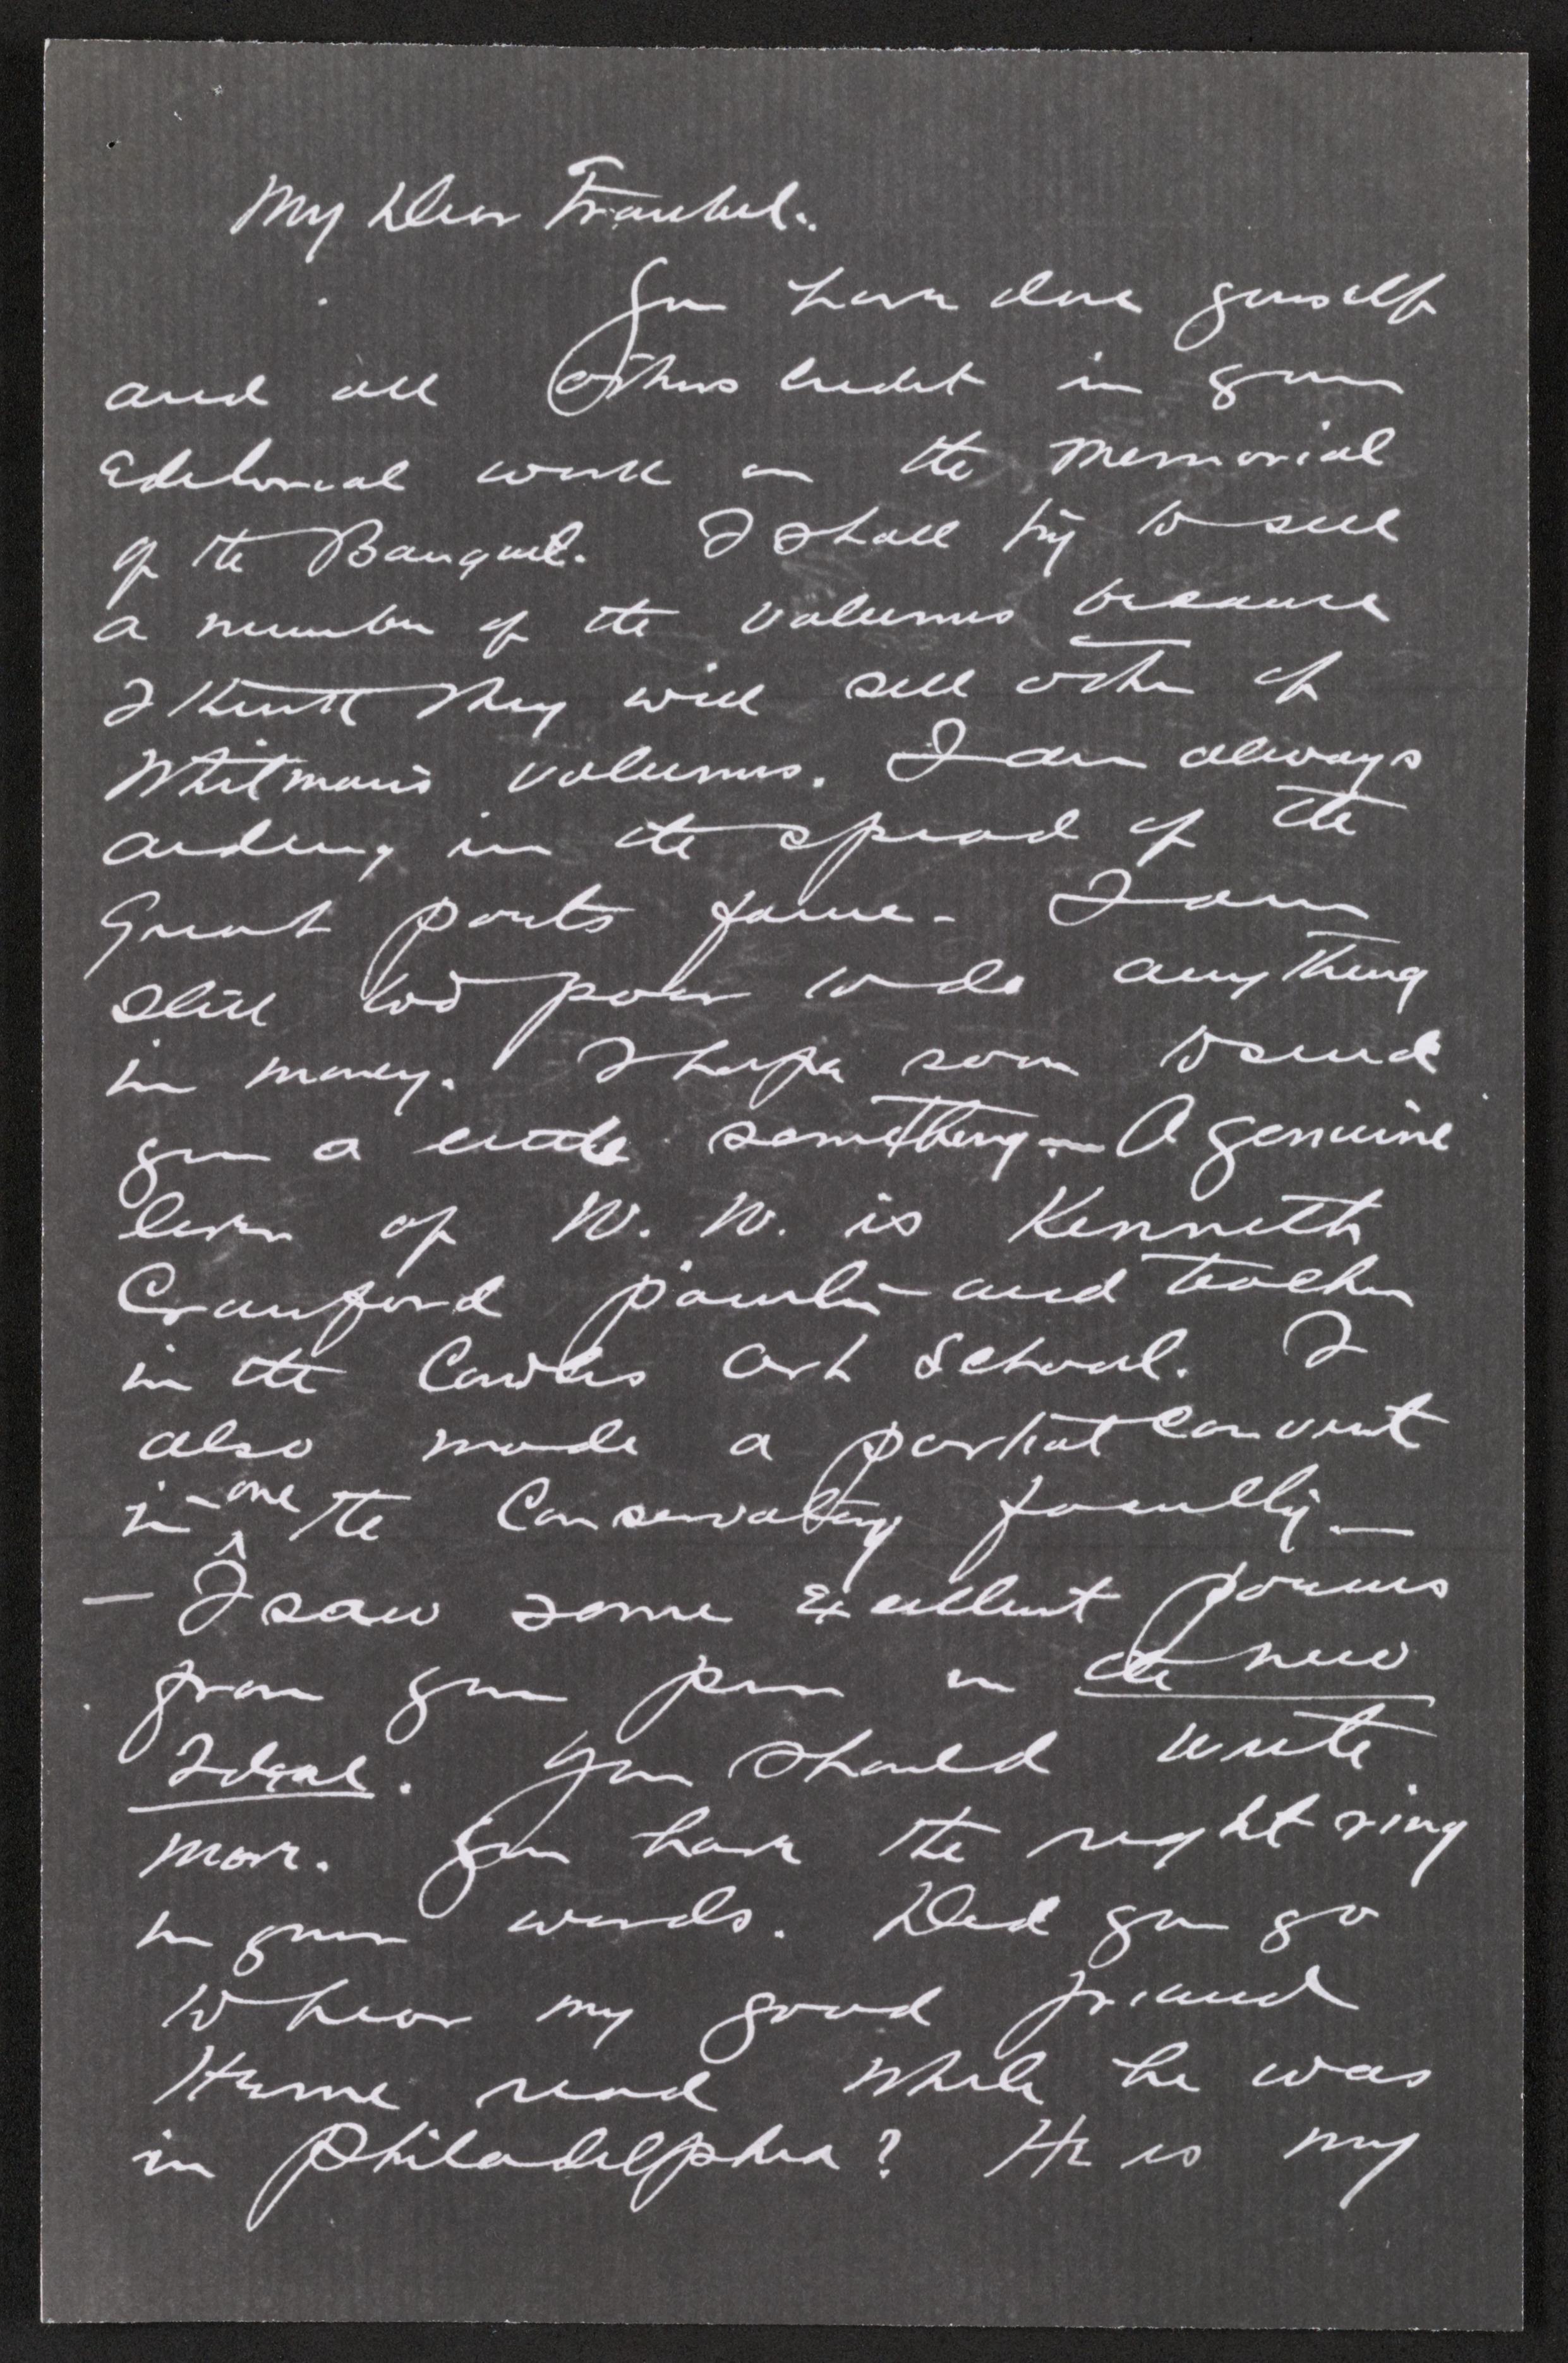 My Dear Traubel.
You have done yourself
and all others credit in your
Editorial work on the Memorial
of the Banquet. I shall try to sell
a number of the volumes because
I think they will sell other of
Whitman's volumes. I am always
aiding in the spread of the
Great poets fame - I am
still too poor to do anything
in money. I hope soon to send
you a little something - A genuine
lover of W. W. is Kenneth
Cranford painter and teacher
in the Cowles Art School. I
also made a partial convert
in one the Conservatory faculty -
- I saw some excellent poems
from your pen in the new
Ideal. You should write
more. You have the right ring
in your words. Did you go
to hear my good friend
Herne read while he was
in Philadelphia? He is my